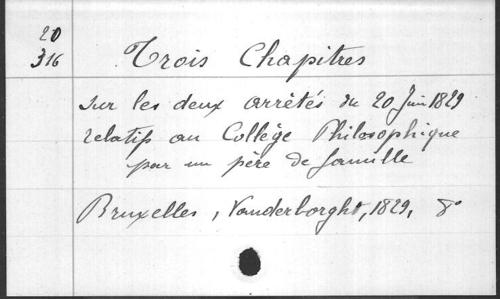 20
316
Trois Chapitres
sur les deux arrêtés du 20 Juin 1829
relatifs au Collège Philosophique
par un père de famille
Bruxelles, Vanderborght, 1829, 8°